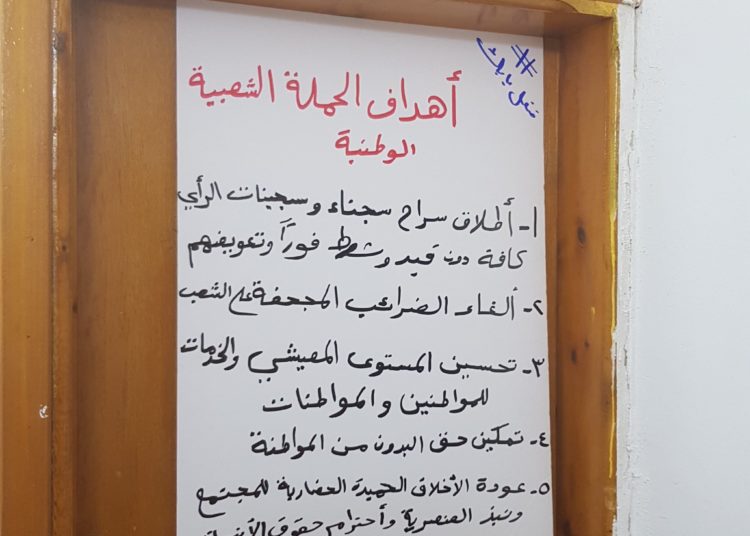 #
أهداف الحملة الشعبية
الوطنية
١- أطلاق سراح سجناء وسجينات الرأي
كافة دون قيد وشرط فوراً وتعويضهم
٢- ألغاء الضرائب المجحفة على الشعب
٣- تحسين المستوى المعيشي والخدمات
للمواطنين والمواطنات
٤- تمكين حق البدون من المواطنة
٥- عودة الأخلاق الحميدة الحضارية للمجتمع
ونبذ العنصرية وأحترام حقوق